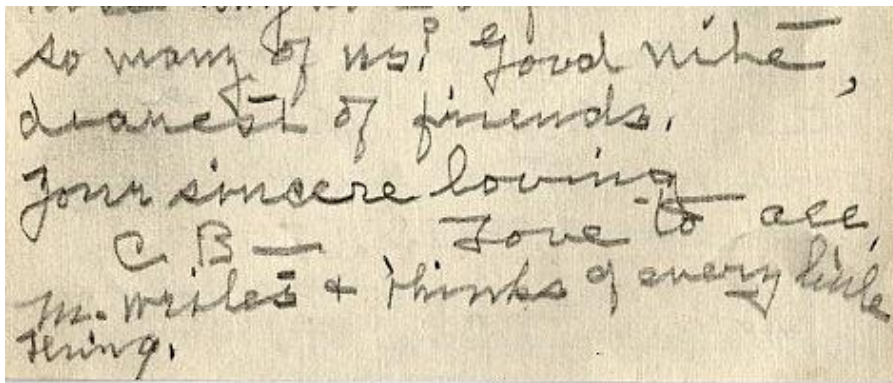 so many of us? Good nite,
dearest of friends.
Your sincere loving
C B — Love to all,
M. writes + thinks of every little
thing.